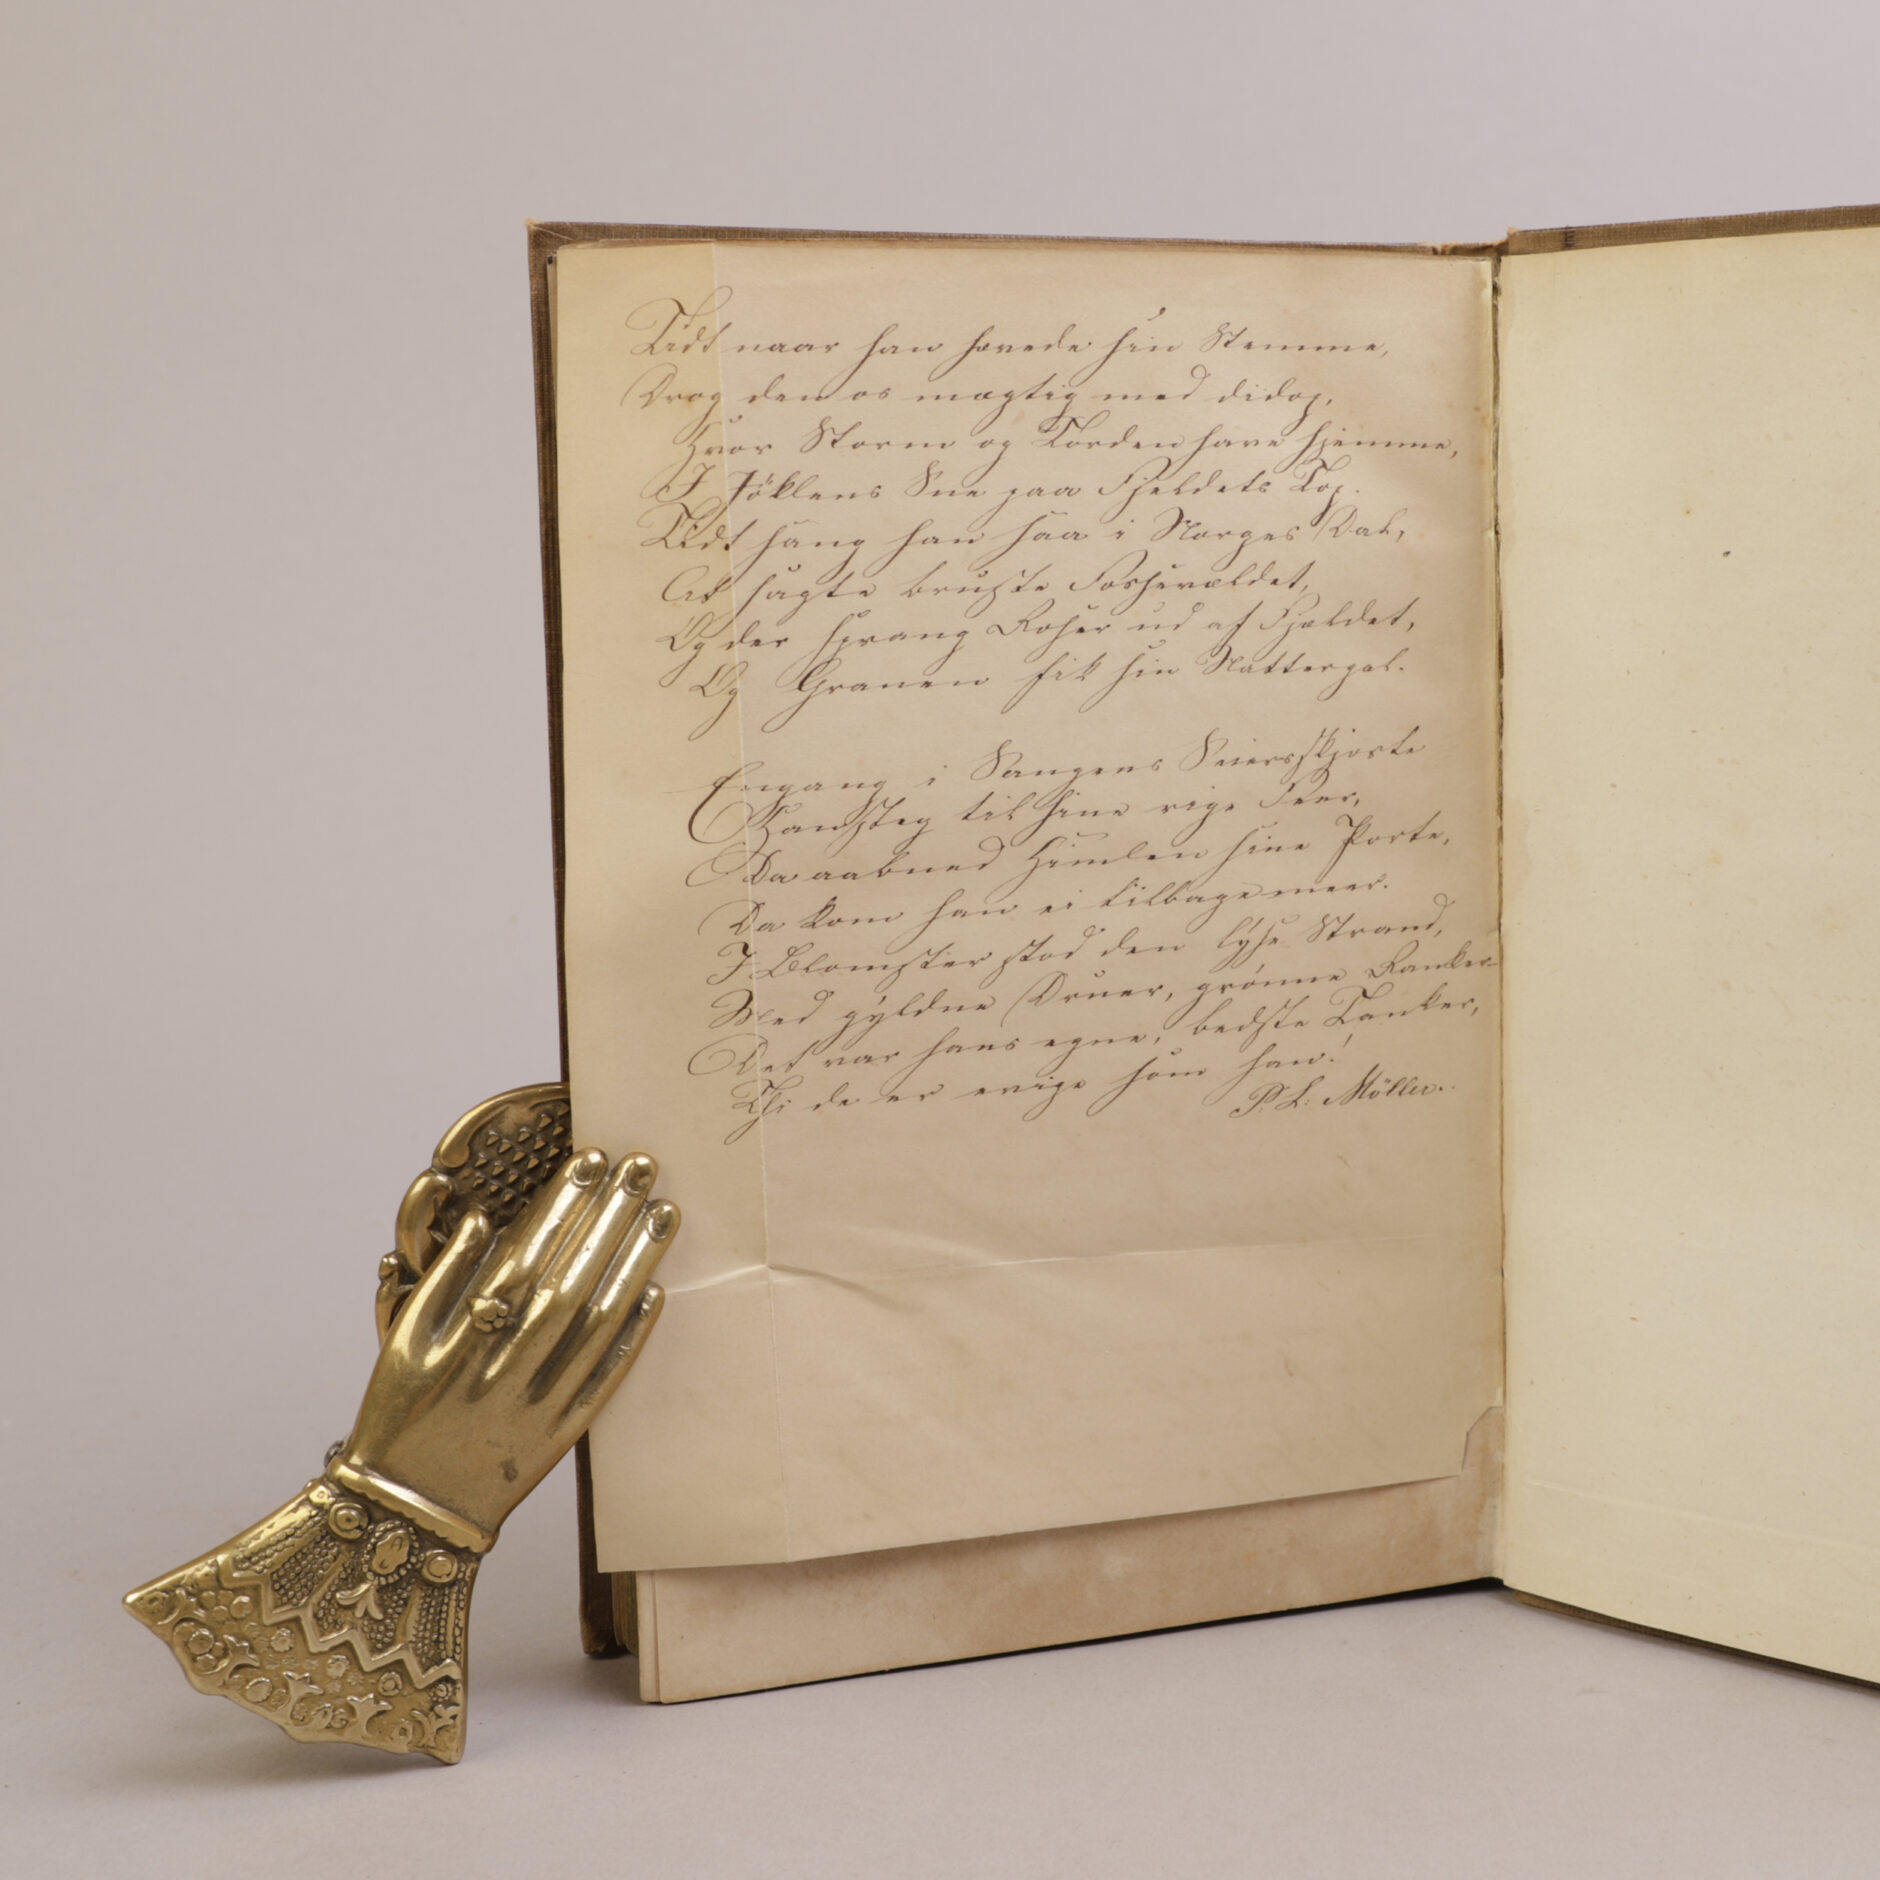 Tidt naar han hævede sin Stemme,
Drog den os mægtig med didop,
Hvor Storm og Torden have hjemme,
I Jöklens Sne paa Fjeldets Top.
Tidt sang han saa i Norges Dal,
At sagte bruste Fossevældet,
Og der sprang Roser ud af Fjældet,
Og Granen fik sin Nattergal.
Engang i Sangens Seiersskjorte
Han steg til sine rige Feer,
Da aabned Himlen sine Porte,
Da kom han ei tilbage meer.
I Blomster stod den lyse Strand,
Med gyldne Druer, grønne Ranker
Det var hans egne, bedste Tanker,
Thi de er evige som han!
P. L. Möller.